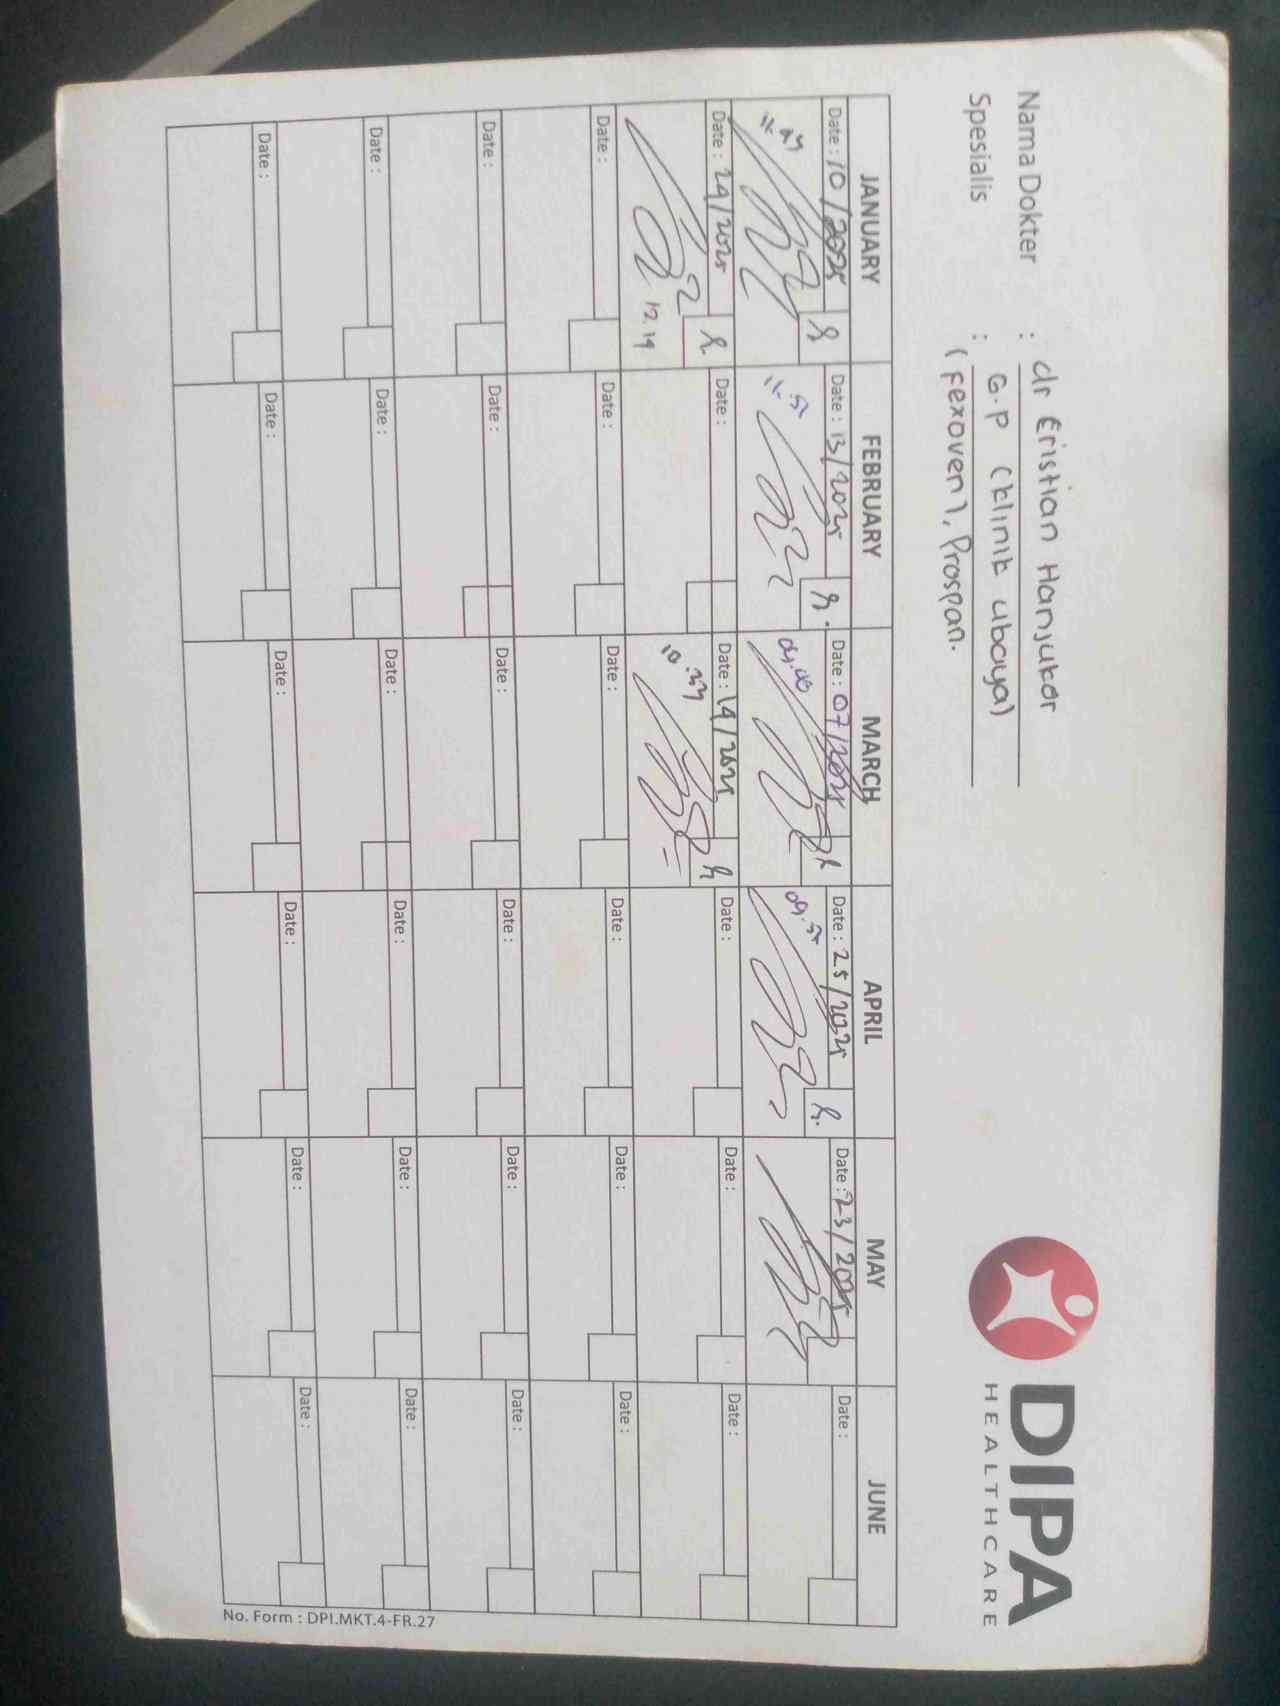 Nama Dokter : dr Eristian Hanjukar
Spesialis : G.P (klinik ubaya)
(Fexoven), Prospan.
DIPA
HEALTHCARE
JANUARY FEBRUARY MARCH APRIL MAY JUNE
Date : 10/2025 Date : 13/2025 Date : 07/2025 Date : 25/2025 Date : 23/2025 Date :
11.52 09.00 09.52
Date : 24/2025 Date : Date : 14/2025 Date : Date : Date :
12.19 10.34
Date : Date : Date : Date : Date : Date :
Date : Date : Date : Date : Date : Date :
Date : Date : Date : Date : Date : Date :
Date : Date : Date : Date : Date : Date :
No. Form : DPI.MKT.4-FR.27